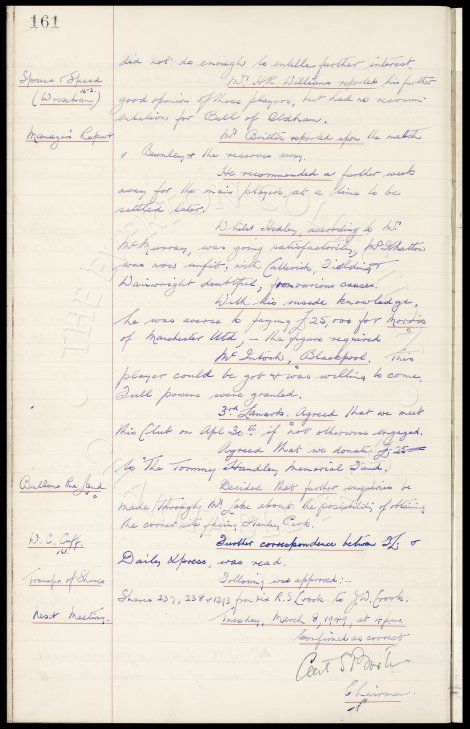 161
did not do enough to entitle further interest.
Spruce & Speed
(Wrexham)
Mr. H.R. Williams reported his further
good opinion of these players, but had no recom-
mendation for Bell of Oldham.
Manager's Report
Mr. Britton reported upon the match
v Burnley & the reserves away.
He recommended a further week
away for the main players at a time to be
settled later.
Whilst Hedley, according to Mr.
McMurray, was going satisfactorily, McIlhatton
was now unfit, with Catterick, Fielding &
Wainwright doubtful, from various causes.
With his inside knowledge,
he was averse to paying £25,000 for Morris
of Manchester Utd, – the figure required
McIntosh, Blackpool. This
player could be got & was willing to come.
Full powers were granted.
3rd Lanark. Agreed that we meet
this Club on Apl 30th if not otherwise engaged.
Agreed that we donate £25
to "The Tommy Handley Memorial Fund.
Bullens Rd Land
Decided that further enquiries be
made through Mr Lake about the possibility of obtaining
the corner site facing Stanley Park.
W. C. Cuff
Further correspondence between F.L. &
Daily Xpress, was read.
Transfer of Shares
Following was approved:-
Shares 237, 238 & 1393 from R.S Crooks to J.W. Crooks.
Next Meeting.
Tuesday, March 8, 1949, at 4 pm
Confirmed as correct
Chairman